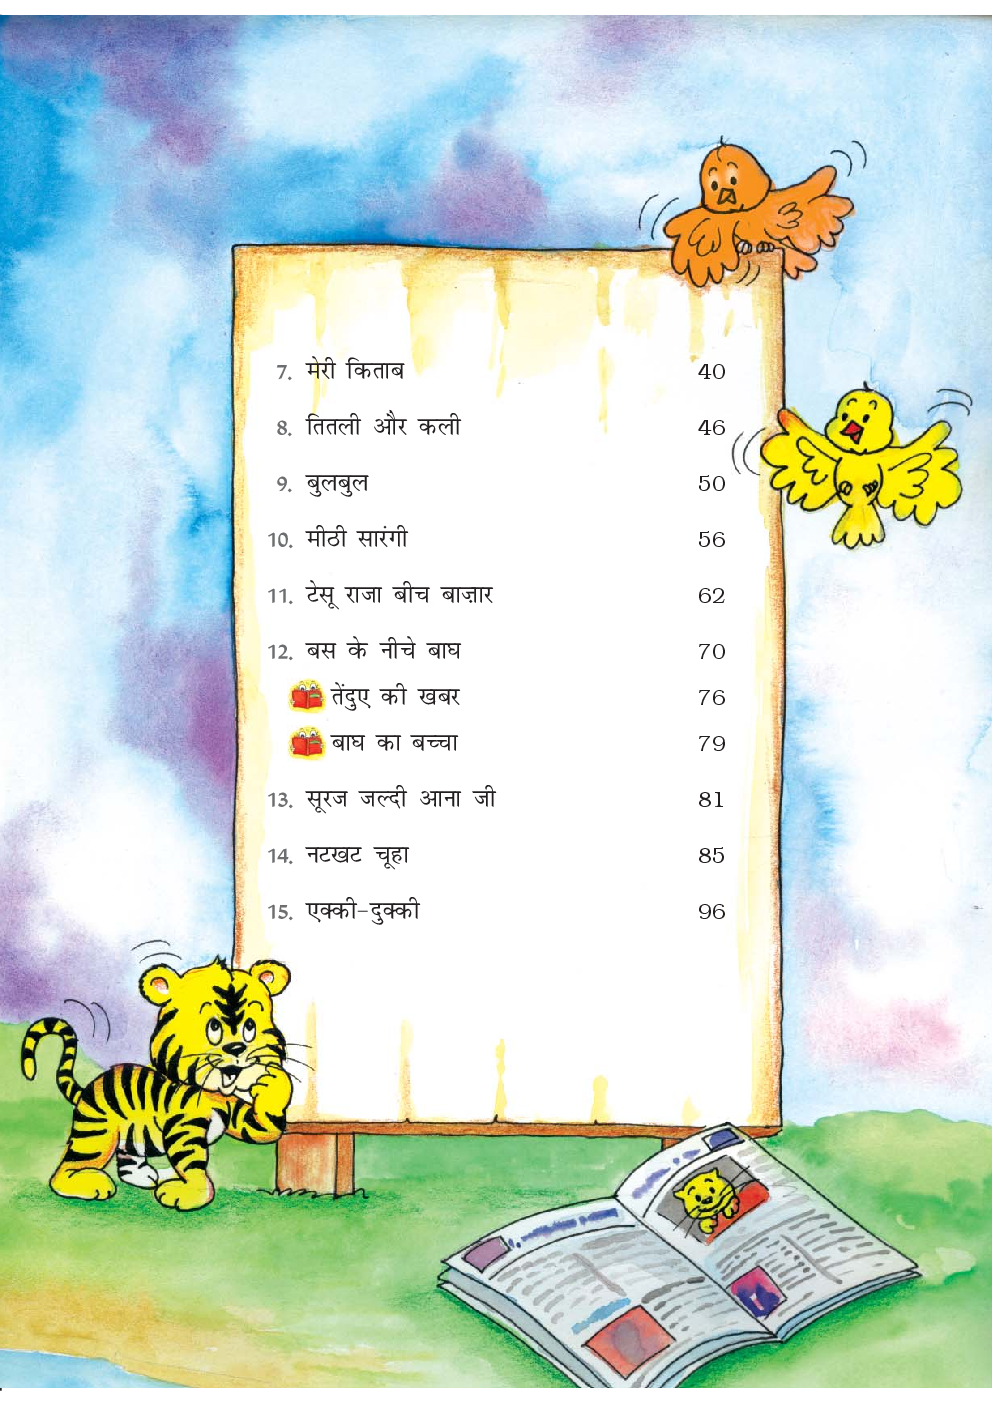 7. मेरी किताब 40
8. तितली और कली 46
9. बुलबुल 50
10. मीठी सारंगी 56
11. टेसू राजा बीच बाज़ार 62
12. बस के नीचे बाघ 70
तेंदुए की खबर 76
बाघ का बच्चा 79
13. सूरज जल्दी आना जी 81
14. नटखट चूहा 85
15. एक्की-दुक्की 96